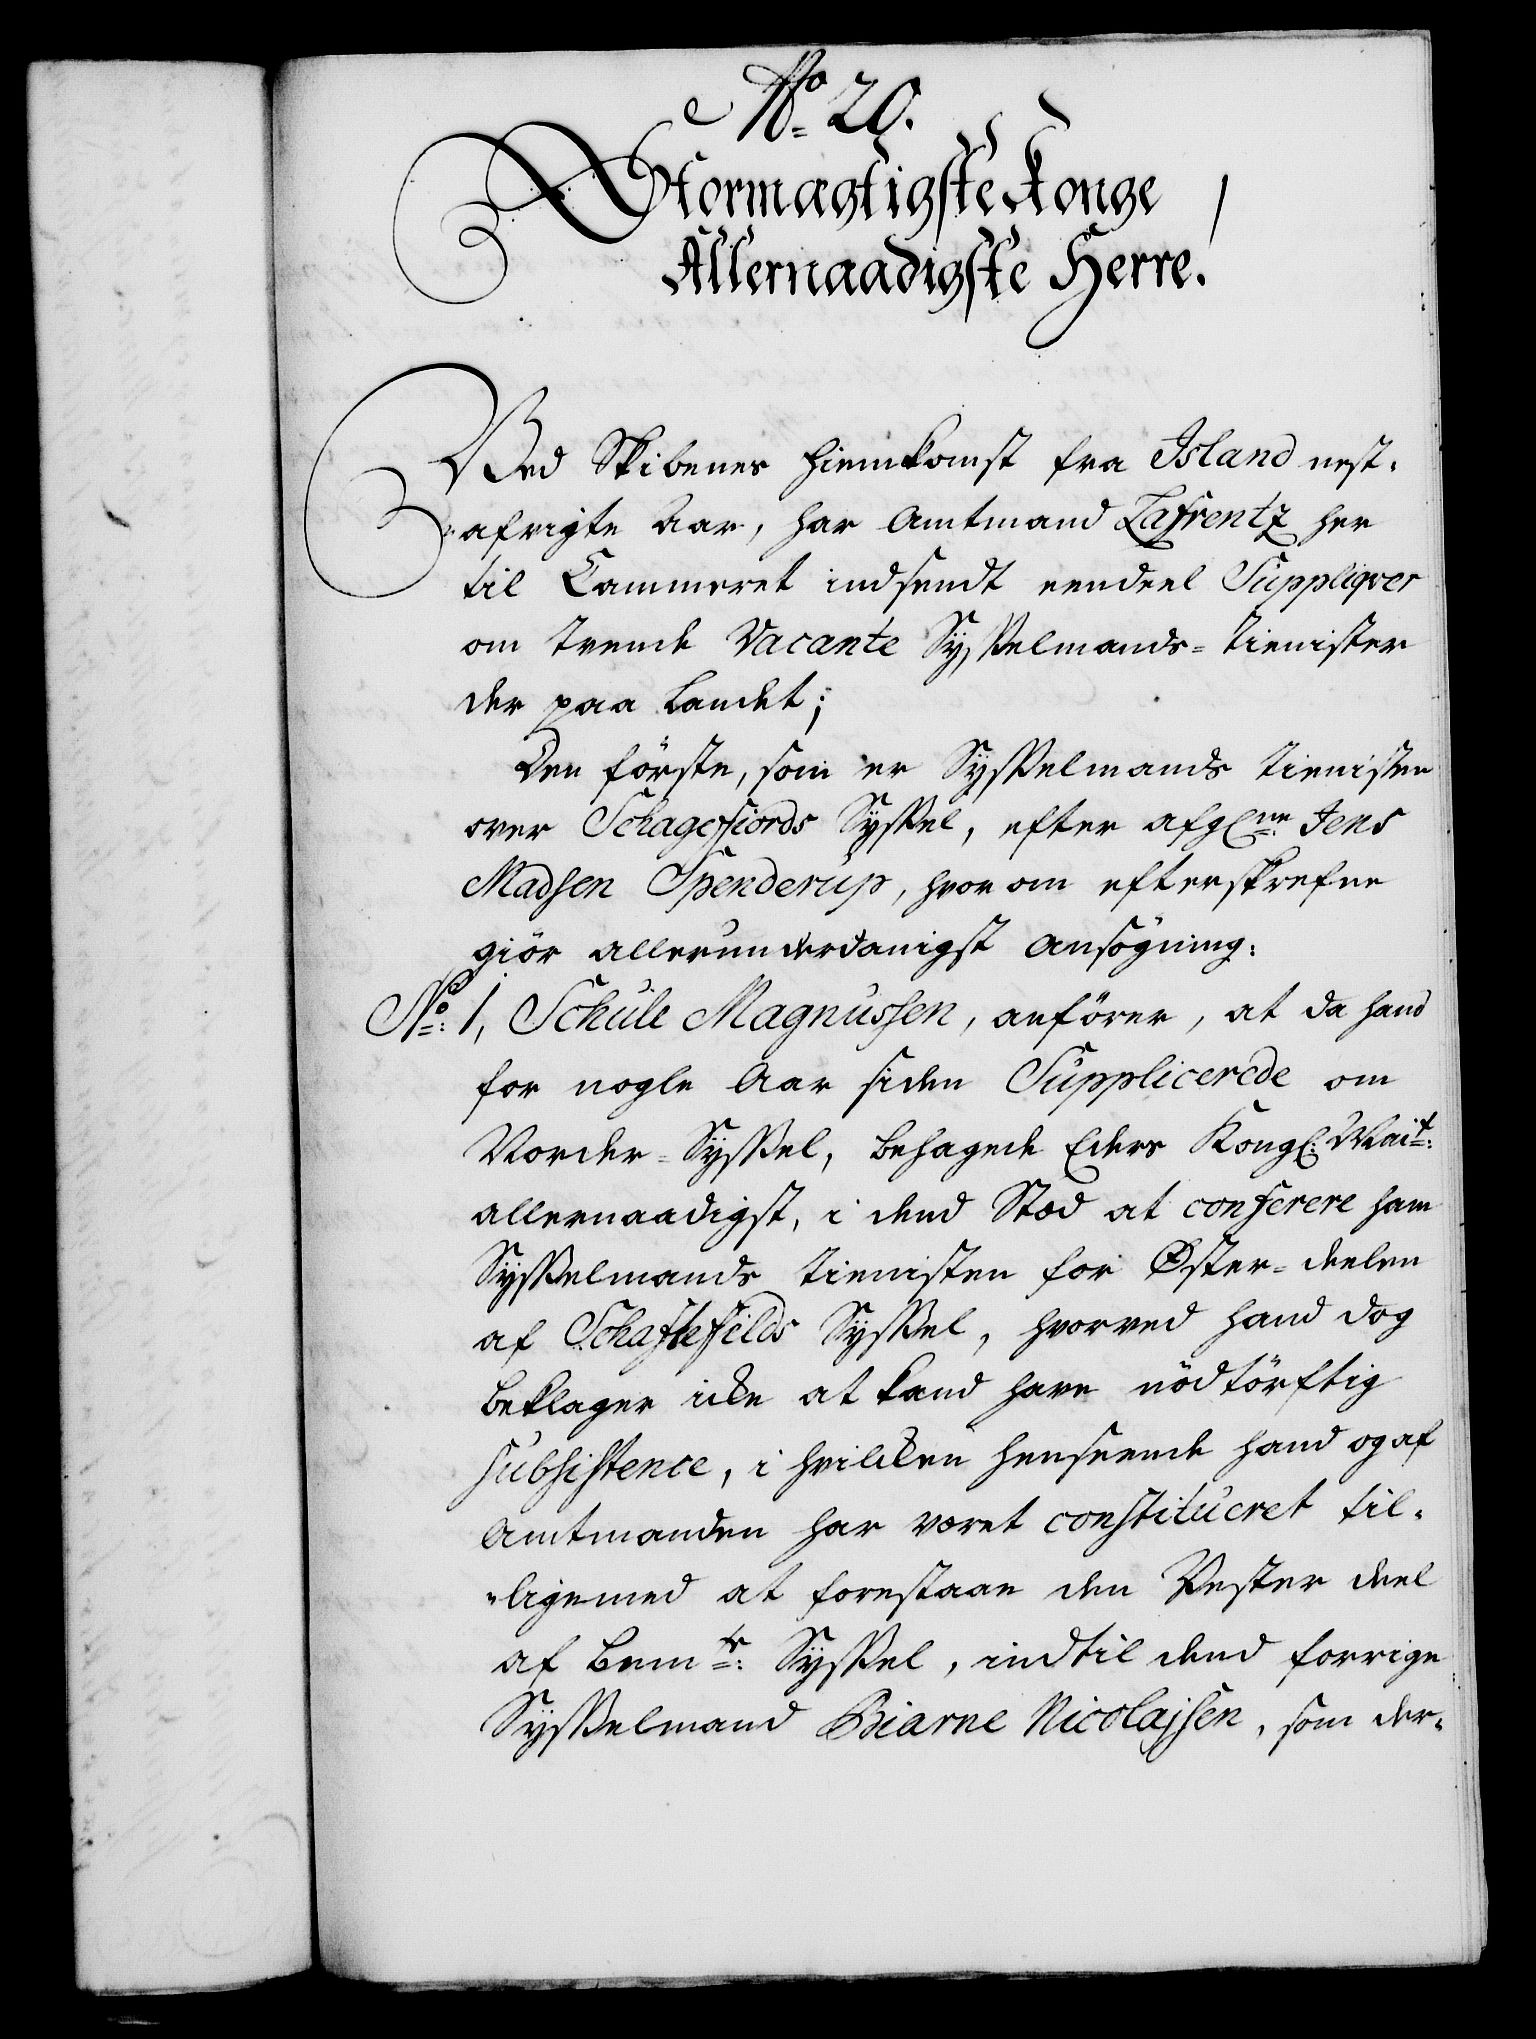 No. 20.
Stormægtigste Konge
Allernaadigste Herre!
Ved Skibenes Hiemkomst fra Island nest-
afvigte Aar, har Amtmand Lafrentz her
til Cammeret indsendt eendeel Suppliqver
om trende Vacante Sysselmands-Tienister
der paa Landet;
Den förste, som er Sysselmands Tienisten
over Schagefiords Syssel, efter afgl:ne Jens
Madsen Spenderup, hvorom efterskrefne
giör allerunderdanigst Ansögning:
No: 1, Schule Magnussen, anförer, at da hand
for nogle Aar siden Supplicerede om
Norder-Syssel, behagede Eders Kongl: Mait:
allernaadigst, i dend Stæd at conferere ham
Sysselmands Tienisten for Øster-deelen
af Schaftefields Syssel, hvorved hand dog
beklager icke at kand have nödtörftig
Subsistence, i hvilcken henseende hand og af
Amtmanden har været constitueret til-
ligemed at forestaae den Vester deel
af bem:te Syssel, indtil dend forrige
Sysselmand Biarne Nicolajsen, som der-